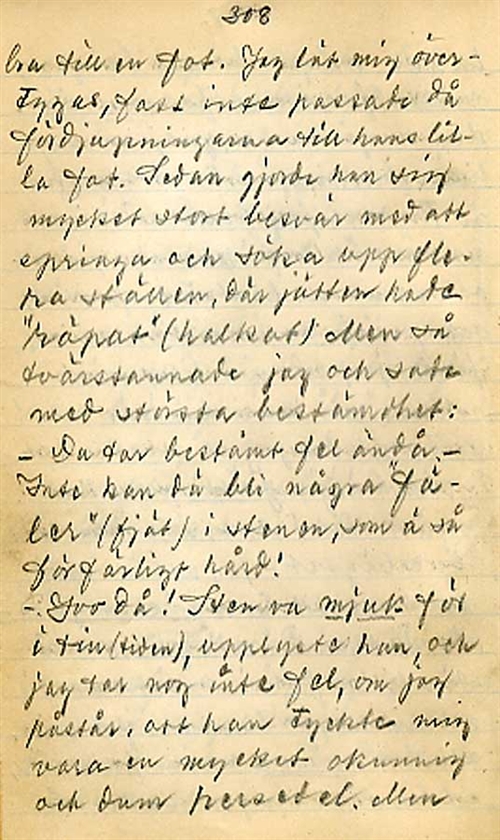 308
bra till en fot. Jag lät mig över-
tygas, fast inte passade då
fördjupningarna till hans lil-
la fot. Sedan gjorde han sig
mycket stort besvär med att
springa och söka upp fle-
ra ställen, där jätten hade
"räpat" (halkat) Men så
tvärstannade jag och sade
med största bestämdhet:
– Du tar bestämt fel ändå. –
Inte kan dä bli några "fä-
ler" (fjät) i stenen, som ä så
förfärligt hård!
– Joo då! Sten va mjuk för
i tin (tiden), upplyste han, och
jag tar nog inte fel, om jag
påstår, att han tyckte mig
vara en mycket okunnig
och dum persedel. Men